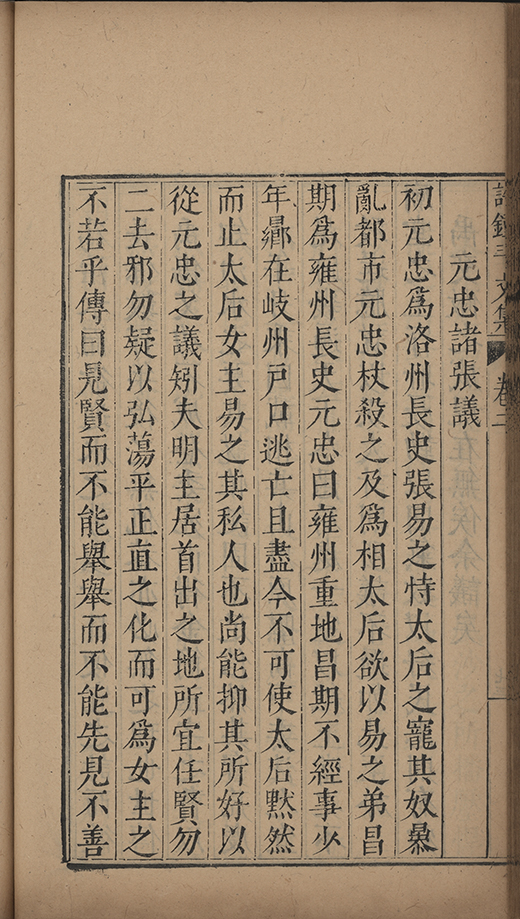 許鍾斗文集 卷二
元忠諸張議
初元忠爲洛州長史張易之恃太后之寵其奴暴
亂都市元忠杖殺之及爲相太后欲以易之弟昌
期爲雍州長史元忠曰雍州重地昌期不經事少
年曏在岐州戶口逃亡且盡今不可使太后默然
而止太后女主易之其私人也尚能抑其所好以
從元忠之議矧夫明主居首出之地所宜任賢勿
二去邪勿疑以弘蕩平正直之化而可爲女主之
不若乎傳曰見賢而不能舉舉而不能先見不善